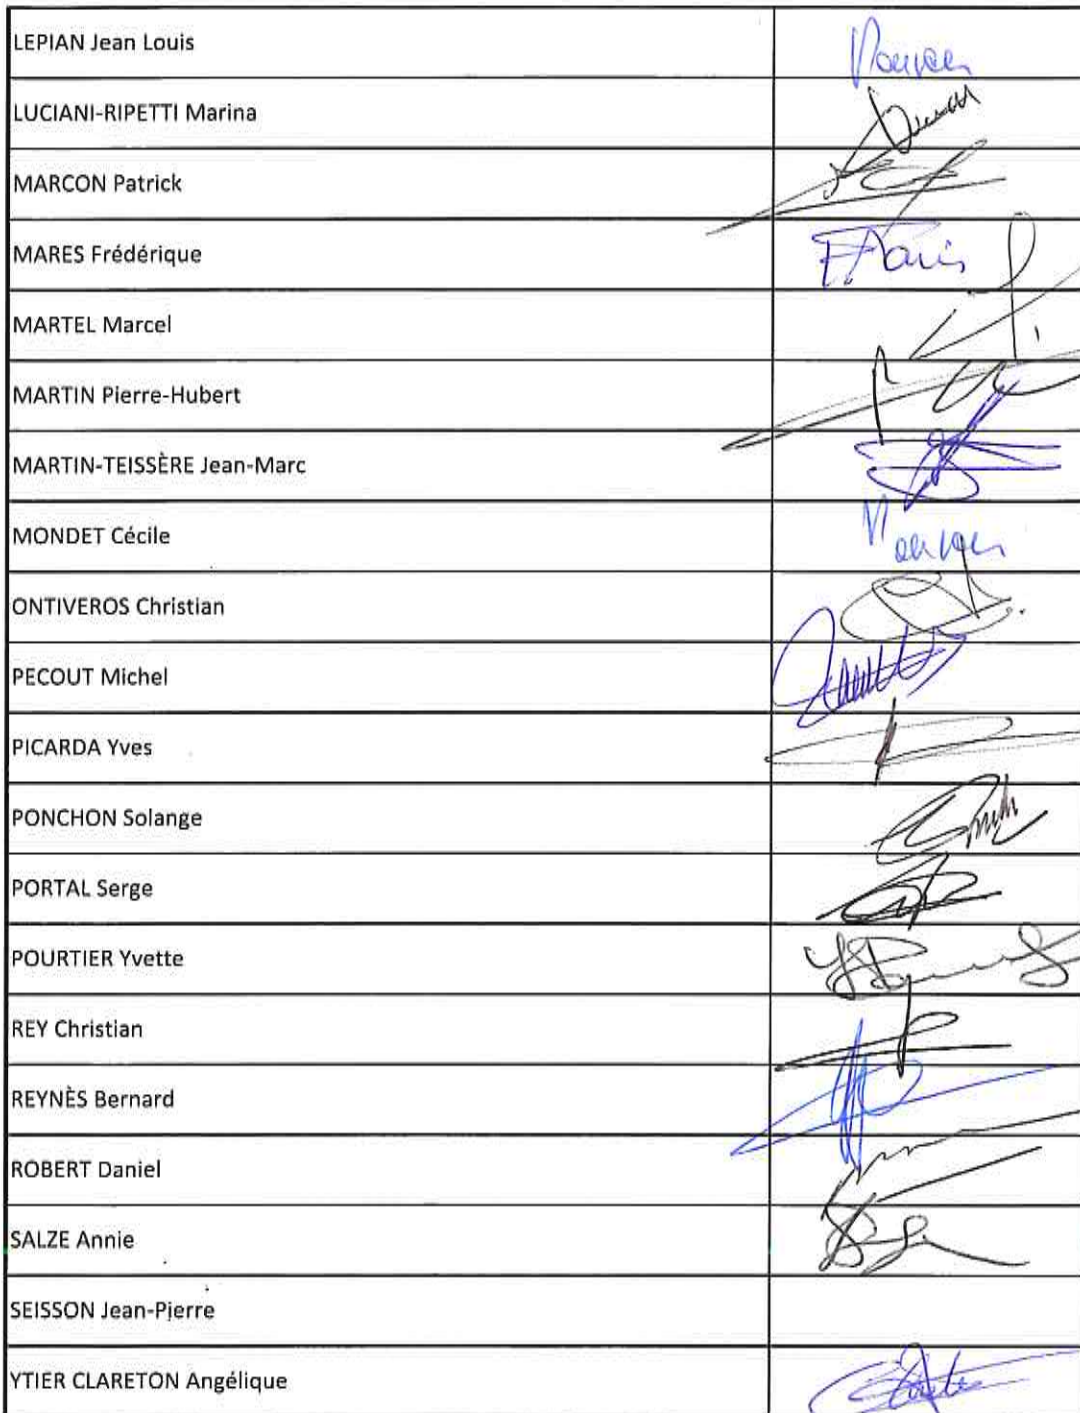 LEPIAN Jean Louis
LUCIANI-RIPETTI Marina
MARCON Patrick
MARES Frédérique
MARTEL Marcel
MARTIN Pierre-Hubert
MARTIN-TEISSÈRE Jean-Marc
MONDET Cécile
ONTIVEROS Christian
PECOUT Michel
PICARDA Yves
PONCHON Solange
PORTAL Serge
POURTIER Yvette
REY Christian
REYNÈS Bernard
ROBERT Daniel
SALZE Annie
SEISSON Jean-Pierre
YTIER CLARETON Angélique